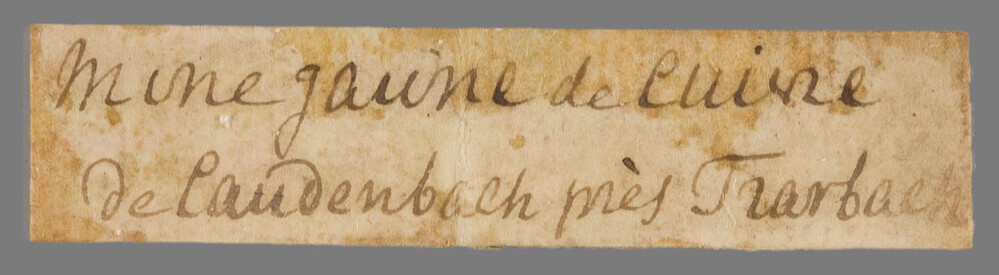 Mine jaune de Cuivre
de Caudenbach près Trarbach